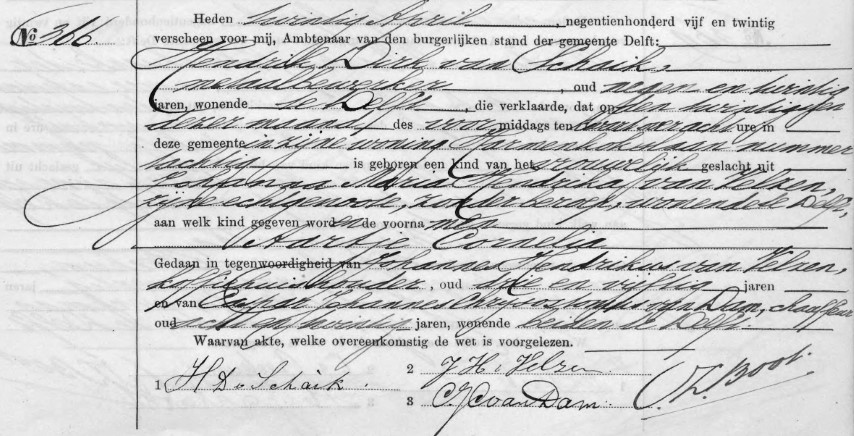 No 366.
Heden twintig April, negentienhonderd vijf en twintig
verscheen voor mij, Ambtenaar van den burgerlijken stand der gemeente Delft:
Hendrik Dirk van Schaik,
metaalbewerker, oud negen en twintig
jaren, wonende te Delft, die verklaarde, dat op den twintigsten
dezer maand des voormiddags ten ure in
deze gemeente in zijne woning Harmenkokslaan nummer
tachtig is geboren een kind van het vrouwelijk geslacht uit
Johanna Maria Hendrika van Velzen,
zijne echtgenoote, zonder beroep, wonende te Delft,
aan welk kind gegeven worden de voornamen
Aartje Cornelia
Gedaan in tegenwoordigheid van Johannes Hendrikus van Velzen,
koffiehuishouder, oud en vijftig jaren
en van Caspar Johannes van Dam, chauffeur
oud acht en twintig jaren, wonende beiden te Delft.
Waarvan akte, welke overeenkomstig de wet is voorgelezen.
1 H D v Schaik.
2 J H v Velzen.
3 C J C van Dam.
Boot.